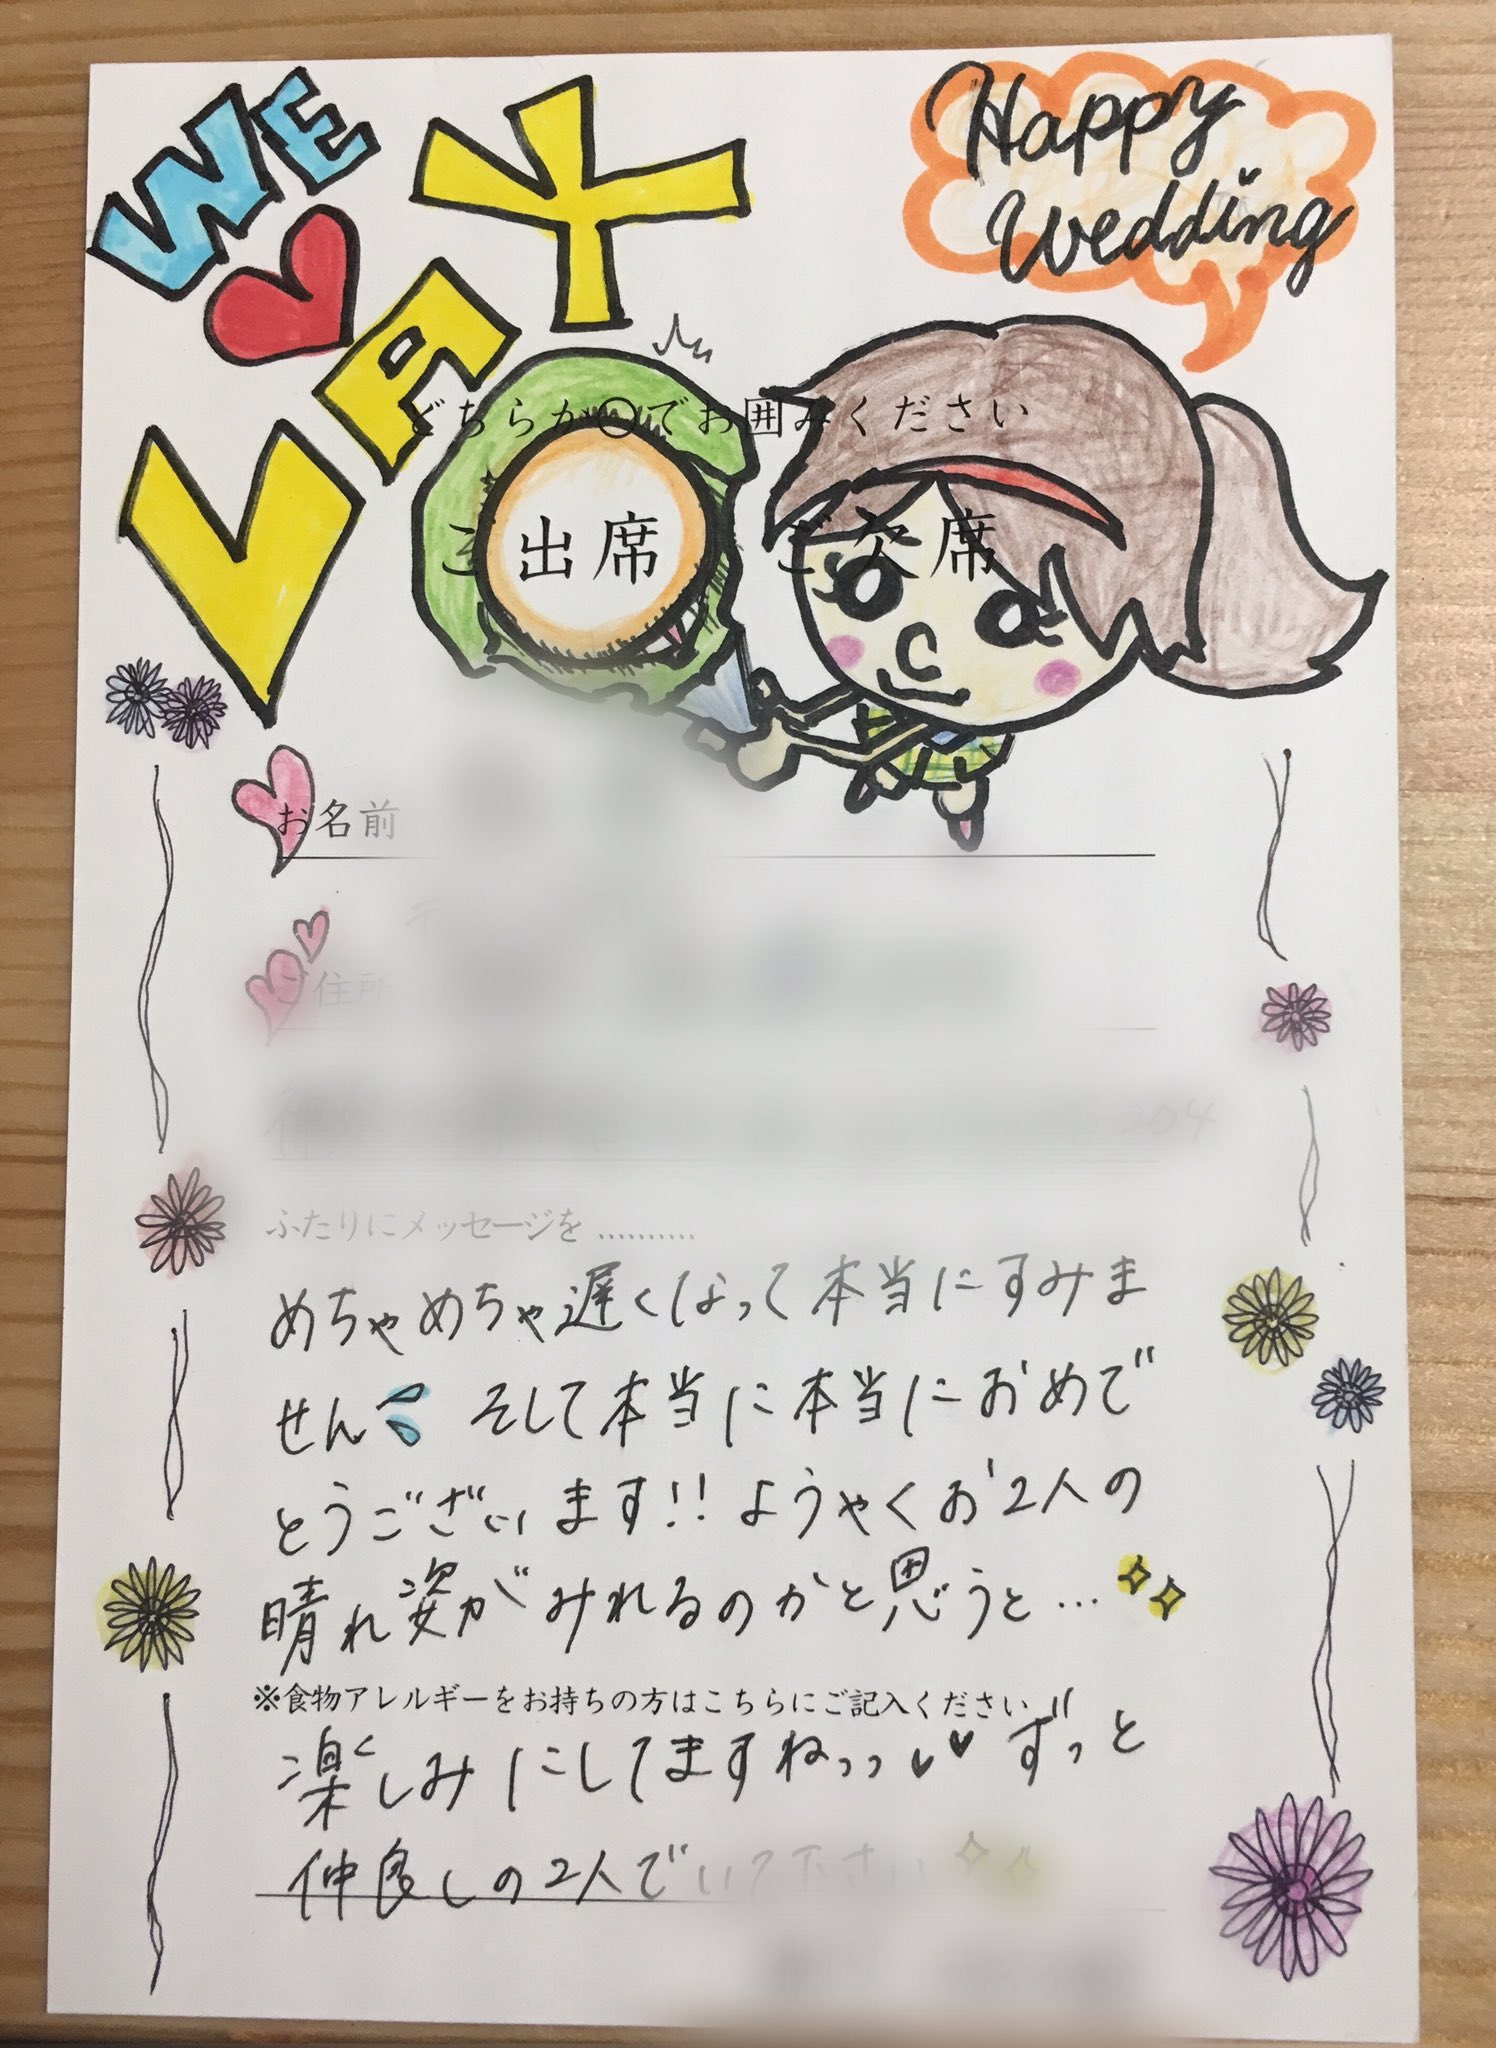 WE
LAY
Happy
Wedding
どちらか○でお囲みください
ご出席 ご欠席
お名前
ご住所
204
ふたりにメッセージを…………
めちゃめちゃ遅くなって本当にすみま
せん そして本当に本当におめで
とうございます!! ようやくお2人の
晴れ姿がみれるのかと思うと…
※食物アレルギーをお持ちの方はこちらにご記入ください
楽しみにしてますねっっ ずっと
仲良しの2人でいて下さい